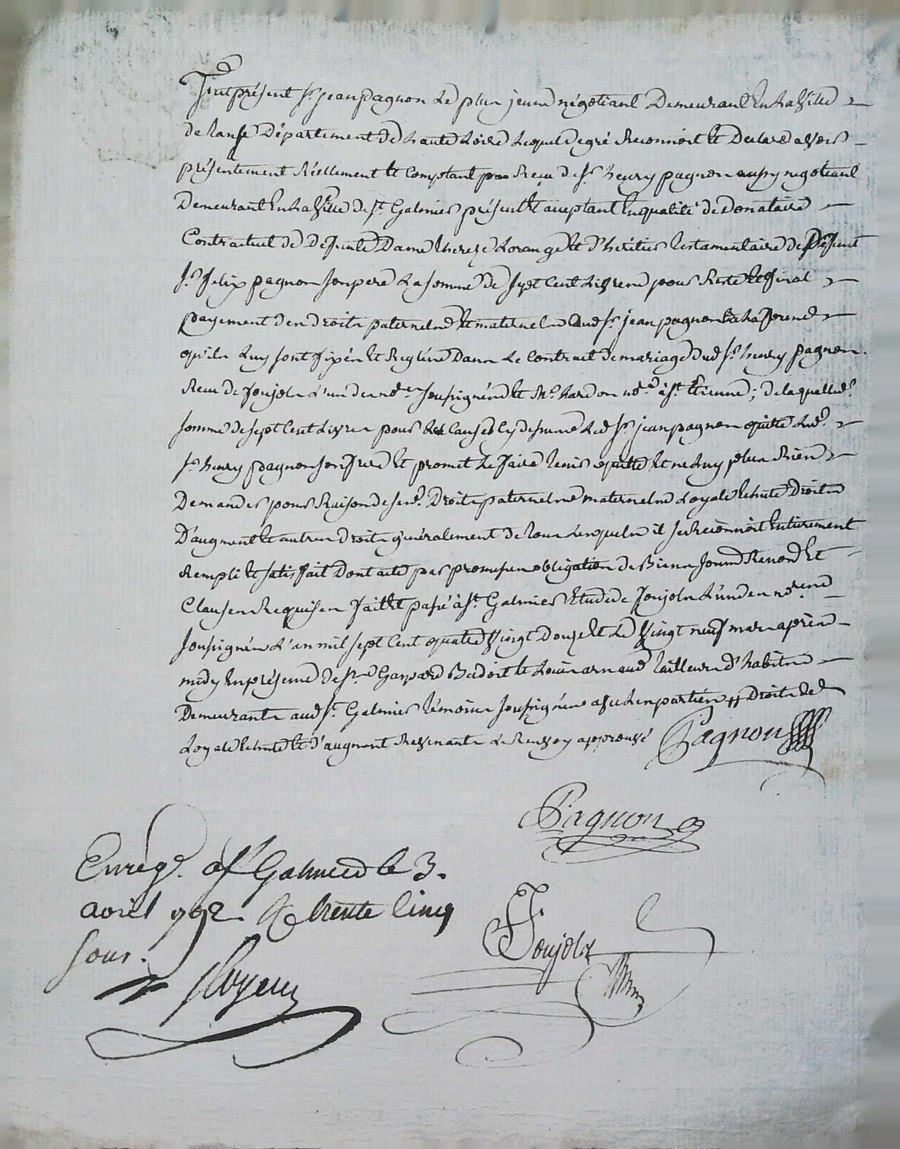 Fut présent Sr. jean pagnon le plus jeune négotiant Demeurant en la Ville
de Département de haute Loire Lequel de gré Reconnoit et Declare avoir
présentement Réellement et Comptant Reçu de Sr. henry pagnon aussy negotiant
Demeurant en la Ville de St. Galmier présent et acceptant en qualité de Donataire
Contractuel de Defunte Dame therese Lorange et d'héritier testamentaire de Défunt
Sr. felix pagnon son pere La somme de sept Cent Livres pour Reste et final
payement des droits paternels et maternels dud. Sr. jean pagnon
qu'ils Luy sont fixés et Reglés Dans Le Contrat de mariage dud. Sr. henry pagnon
Reçu de Joujols L'un des nores. soussignés et Me. hardon nore. à St. Etienne; de laquelle
somme de sept Cent Livres pour les Causes Cy dessus Led. Sr. jean pagnon quitte Led.
Sr. henry pagnon son frere et promet Le faire tenir quitte et ne Luy plus Rien
Demander pour Raison de ses. Droits paternels maternels Loyale echute Droits
D'augment et autres Droits généralement de tous Lesquels il se Reconnoit entierement
Rempli et satisfait Dont acte par promesses obligation de Biens soumis Renon. et
Clauses Requises fait et passé à St. Galmier Etude de Joujols L'un des nores.
soussignés L'an mil sept Cent quatre Vingt Douze et Le Vingt neuf mars après
midy en présence de Srs. Gaspard Bedoit et Louis arnaud tailleurs d'habits
Demeurants aud. St. Galmier témoins soussignés avec les parties // Droits de
Loyale echute et d'augment Revenants Le Renvoy approuvé Pagnon
Pagnon
Enregé. à St. Galmier le 3.
avril 1792. Rç trente cinq
sous.
Joujols